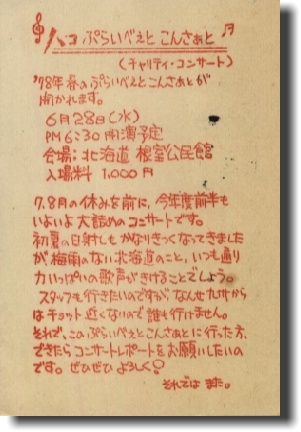 八コ ぷらいべえと こんさあと
(チャリティ・コンサート)
'78年 春の ぷらいべえと こんさあとが
開かれます。
6月28日(水)
PM 6:30 開演予定
会場: 北海道 根室公民館
入場料 1,000円
7,8月の休みを前に、今年度前半も
いよいよ大詰めのコンサートです。
初夏の日射しもかなりきつくなってきました
が、梅雨のない北海道のこと、いつも通り
力いっぱいの歌声がきけることでしょう。
スタッフも行きたいのですが、なんせ九州から
はチョット近くないので誰も行けません。
それで、このぷらいべえとこんさあとに行った方、
できたらコンサートレポートをお願いしたいの
です。ぜひぜひ よろしく!
それでは また。